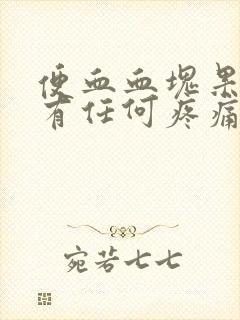 便血血块果
有任何疼痛
宛若七七